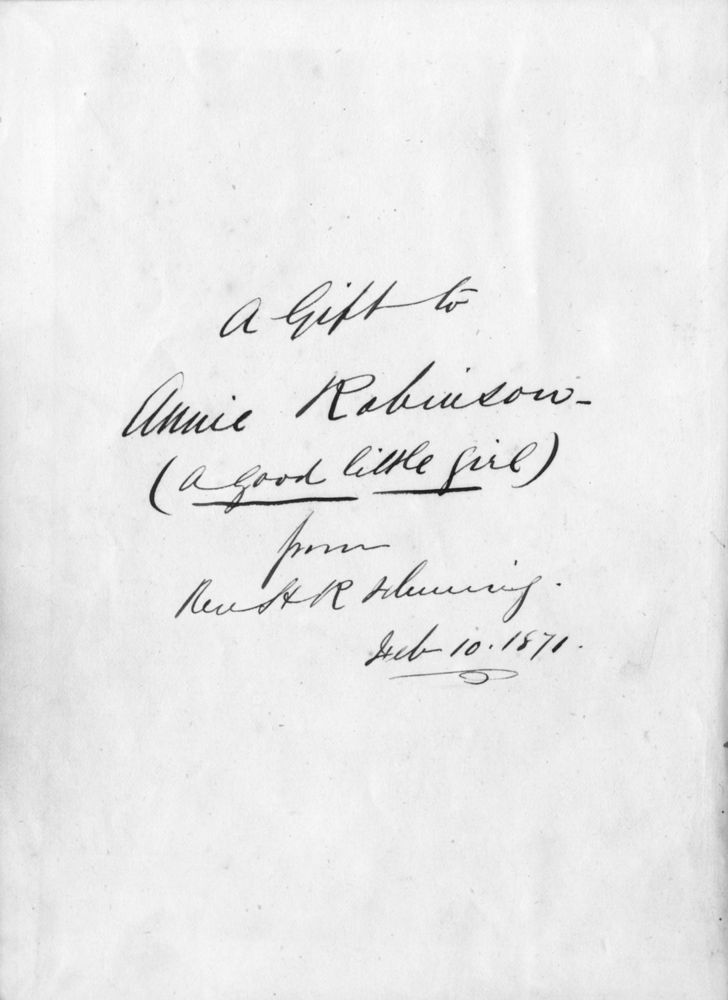 A Gift to
Annie Robinson-
(a good little girl)
from
Rev H R Fleming.
Feb 10. 1871.